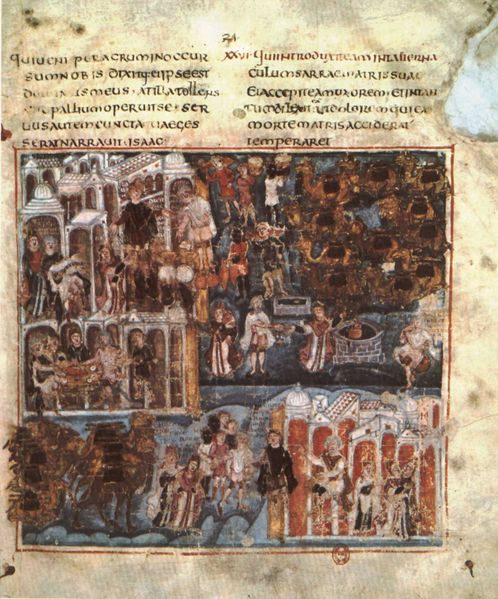 QUIUENIT PERAGRUM INOCCUR
SUM NOBIS DIXITQ EI IPSE EST
MEUS AT ILLA TOLLENS
PALLIUM OPERUIT SE SER
UUS AUTEM CUNCTA QUAE GES
SERAT NARRAUIT ISAAC
QUI INTRODUXIT EAM IN TABERNA
CULUM SARRAE MATRIS SUAE
ET ACCEPIT EAM UXOREM ET IN TAN
TUM DILEXIT UT DOLOREM QUI EX
MORTE MATRIS ACCIDERAT
TEMPERARET